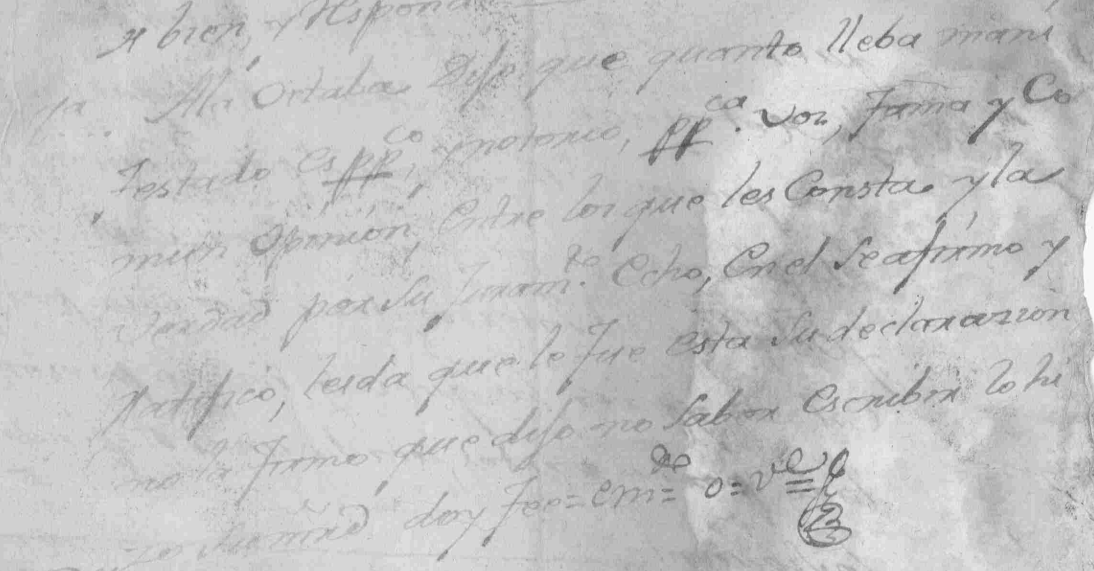 bien, y Responde
A la Octaba. Dijo que quanto lleba mani
festado es pp.co, y notorio, pp.ca voz, fama y Co
mun Opinion, Entre los que les Consta y la
Verdad por su Juram.to Echo, En el Se afirmo y
Ratifico, leida que le fue esta su declarazion
no la firmo, que dijo no saber escribir lo hi
doy fee = em.do = o = v.e =